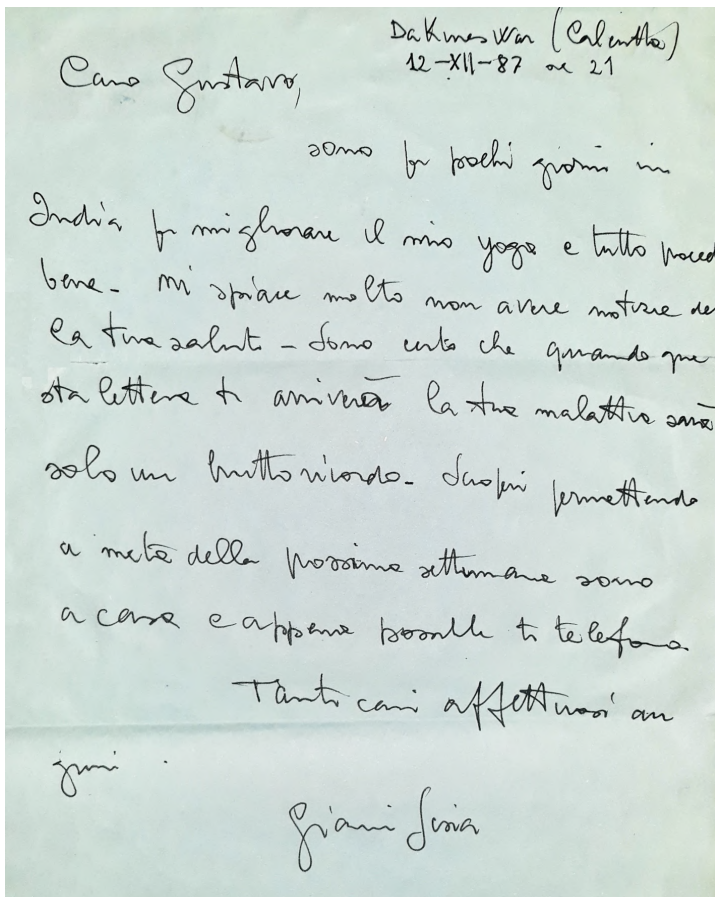 DaKmeswar (Calcutta)
12-XII-87 ore 21
Caro Gustavo,
sono per pochi giorni in
India per migliorare il mio yoga e tutto proced
bene- Mi spiace molto non avere notizie del
la tua salute - Sono certo che quando que
sta lettera ti arriverà la tua malattia sarà
solo un brutto ricordo- Scioperi permettendo
a metà della prossima settimana sono
a casa e appena possibile ti telefono.
Tanti cari affettuosi au
guri.
Gianni